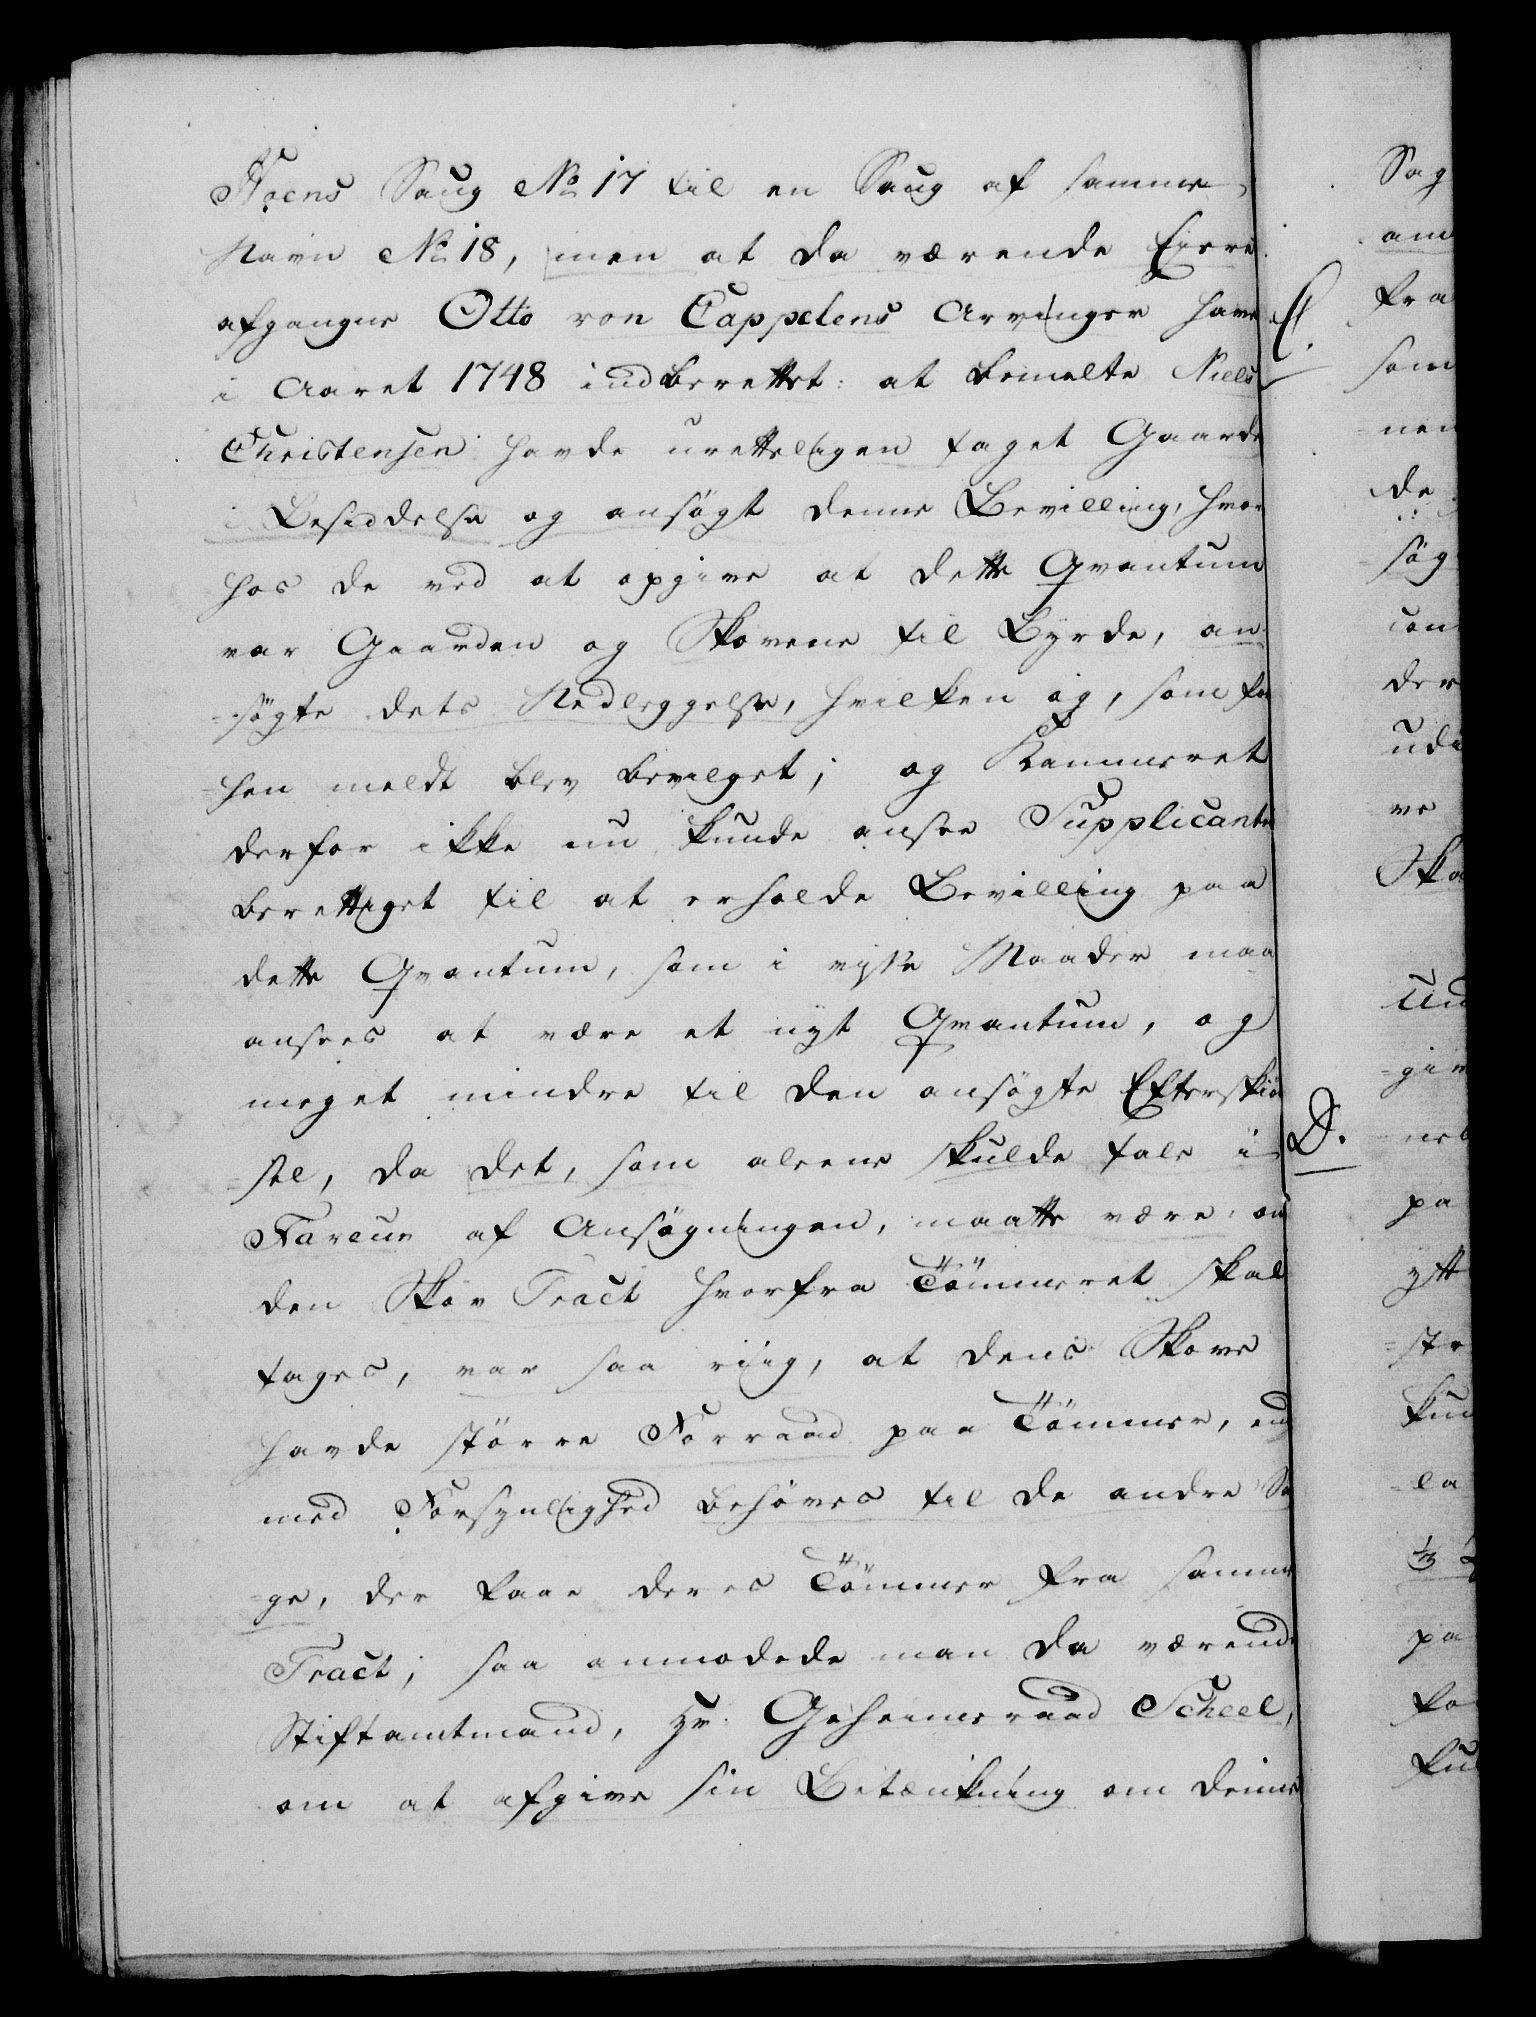 Hoens Saug No 17 til en Saug af samme
Navn No 18, men at da værende Eiere
afgangne Otto von Cappelens Arvinger have
i Aaret 1748 indberettet: at bemelte Niels
Christensen havde urettelligen taget Gaarde
i Besiddelse og ansøgt denne Bevilling, hvor
hos de ved at opgive at dette Qvantum
var Gaarden og Skovene til Byrde, an-
=søgte dets Nedleggelse, hvilken og, som for
=hen meldt blev bevilget; og Kammeret
derfor ikke nu kunde ansee Supplicante
berettiget til at erholde Bevilling paa
dette Qvantum, som i visse Maader maa
ansees at være et nyt Qvantum, og
meget mindre til den ansøgte Efterskiø
=sel, da det, som aleene skulde tale i
Faveur af Ansøgningen, maatte være: om
den Skov Tract hvorfra Tömmeret skal
tages, var saa riig, at dens Skove
havde större Forraad paa Tömmer, end
med Forsynlighed behöves til de andre Sa
=ge, der faae deres Tömmer fra samme
Tract; saa anmodede man da værende
Stiftamtmand, Hr. Geheimeraad Scheel,
om at afgive sin Betænkning om denne
Sag
fra
som
D.
de
søg
der
ve
Sko
pa
kun
pa